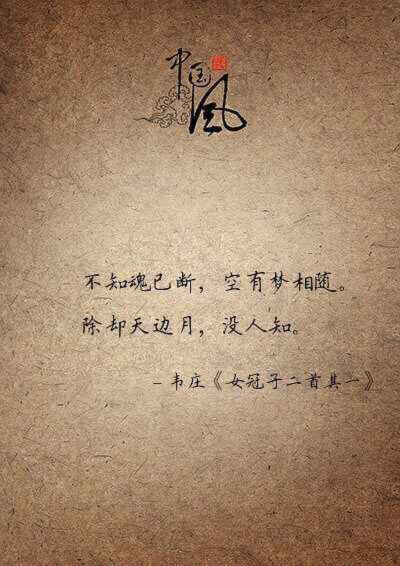 中国风
不知魂已断，空有梦相随。
除却天边月，没人知。
－韦庄《女冠子二首其一》